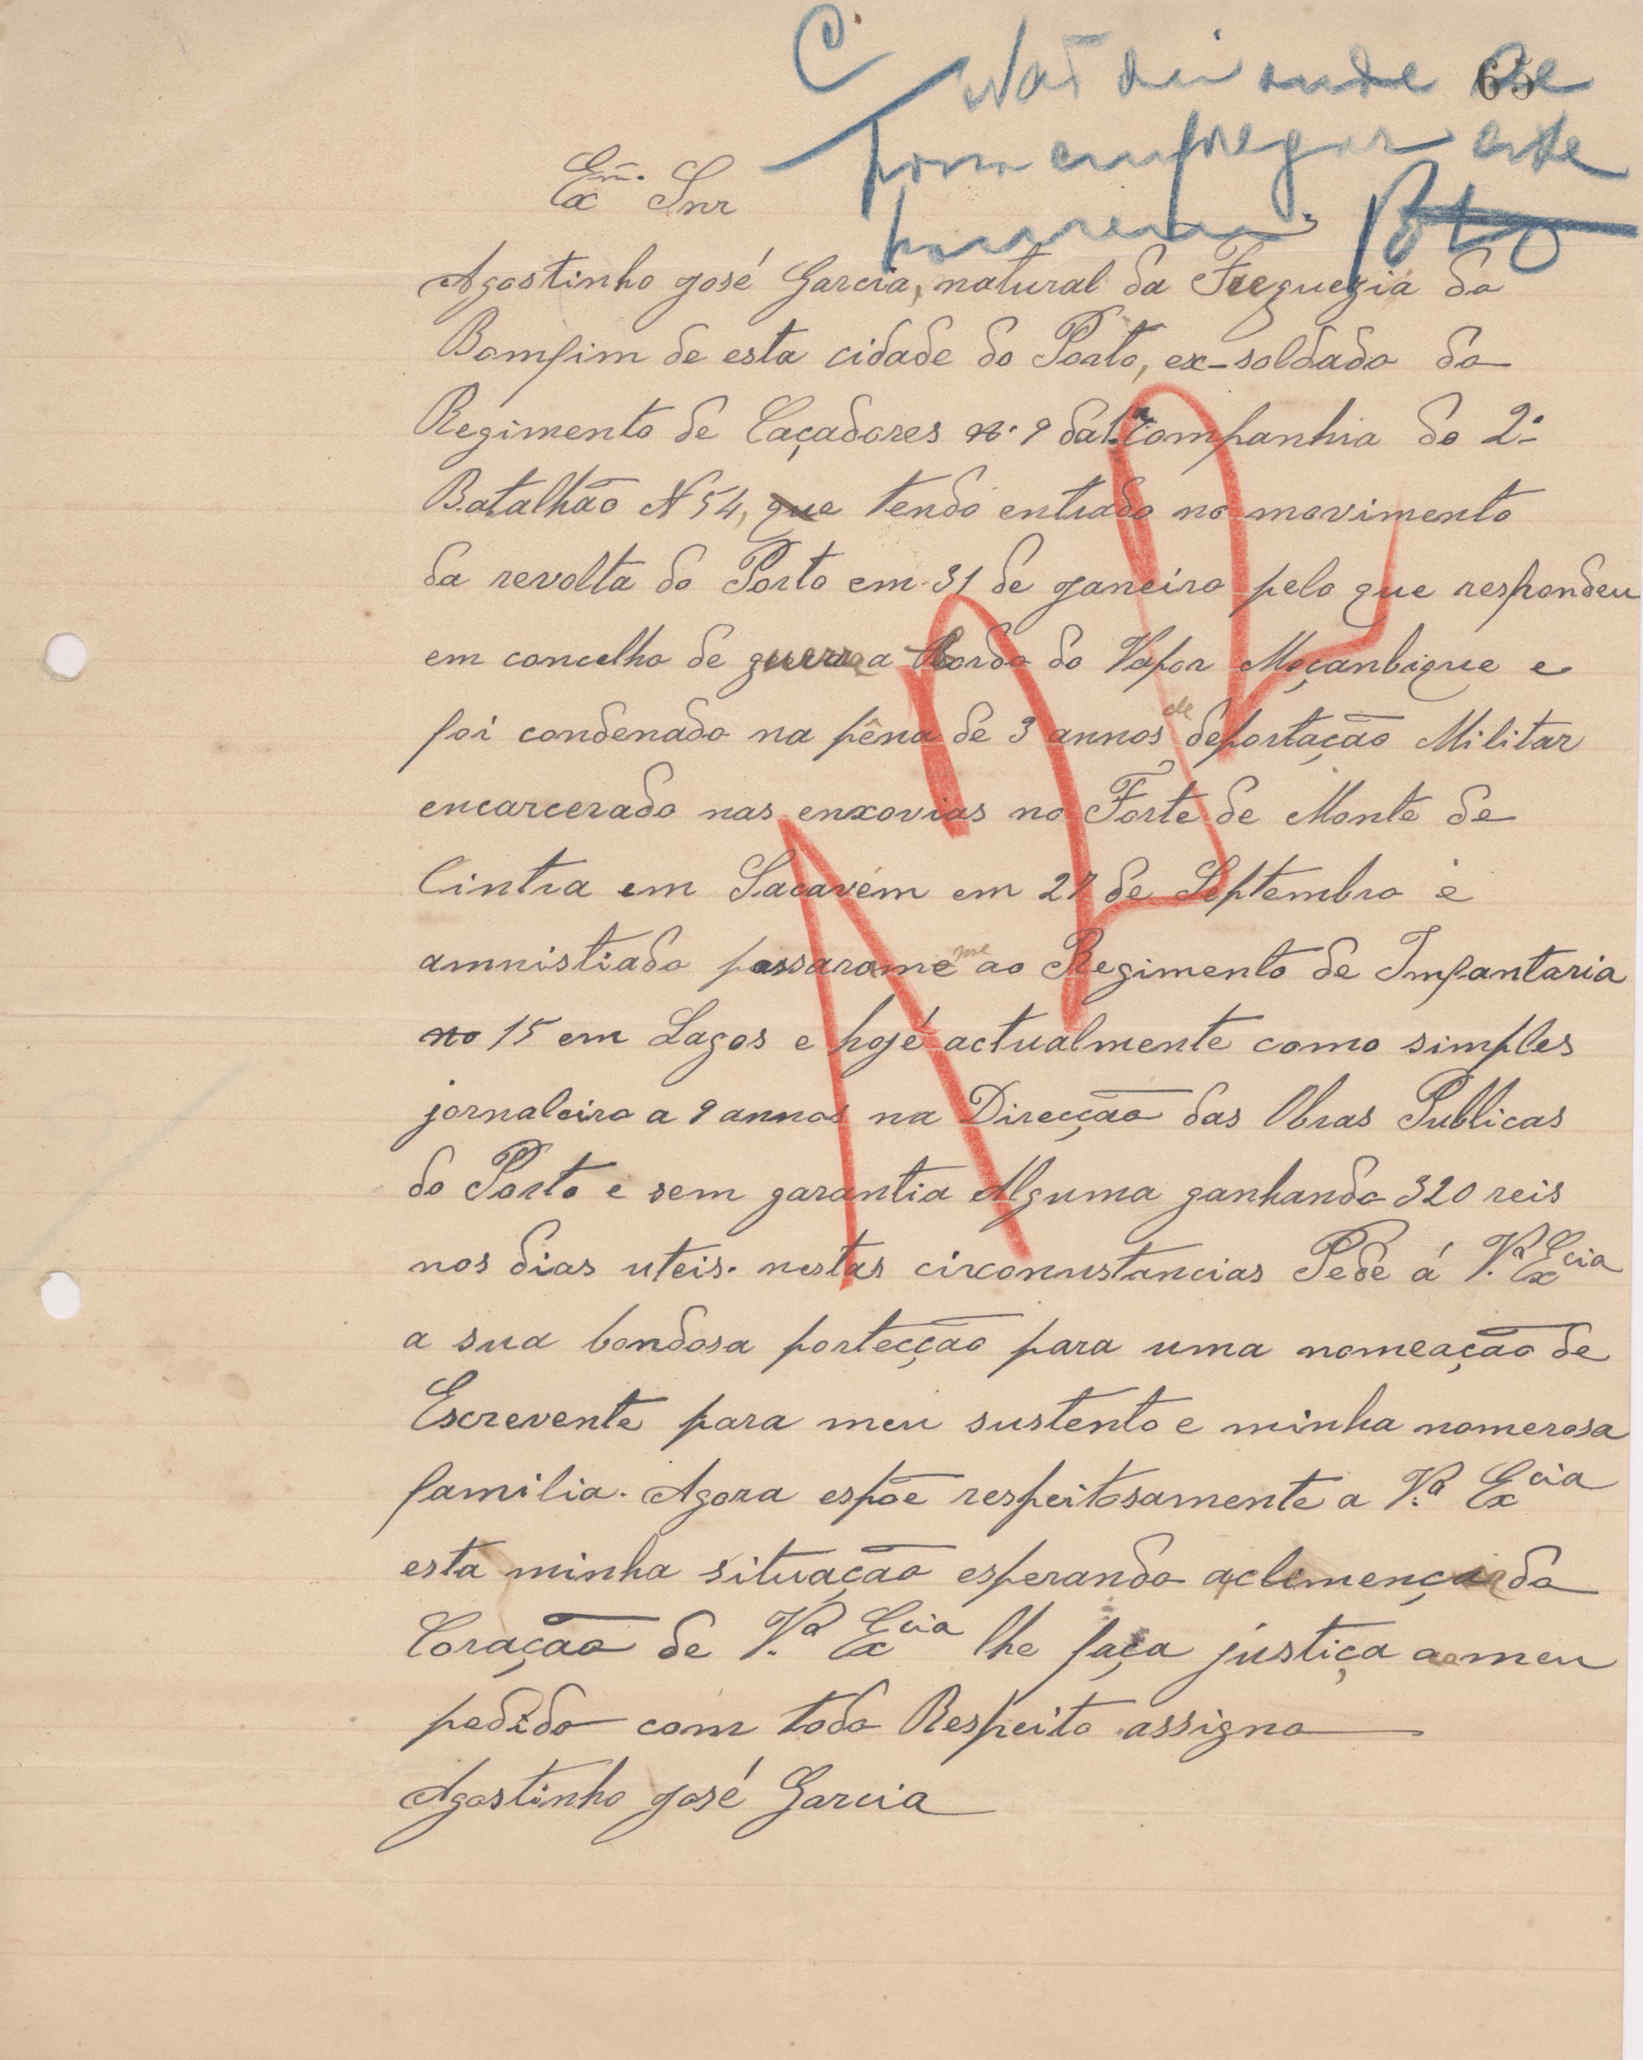 C
Não sei onde se
65
possa empregar este
homem.
Exmo. Snr
Agostinho José Garcia, natural da Freguezia do
Bomfim de esta cidade do Porto, ex-soldado do
Regimento de Caçadores nº 9 da 1ª Companhia do 2º
Batalhão N 54, que tendo entrado no movimento
da revolta do Porto em 31 de Janeiro pelo que respondeu
em concelho de guerra a Bordo do Vapor Moçanbique e
foi condenado na pêna de 3 annos de deportação Militar
encarcerado nas enxovias no Forte de Monte de
Cintra em Sacavém em 27 de Septembro é
amnistiado passarame me ao Regimento de Imfantaria
no 15 em Lagos e hojé actualmente como simples
jornaleiro a 9 annos na Direcção das Obras Publicas
do Porto e sem garantia Alguma ganhando 320 reis
nos dias uteis. nestas circonustancias Pede á V.ª Excia
a sua bondosa portecção para uma nomeação de
Escrevente para meu sustento e minha nomerosa
familia. Agora espõe respeitosamente a V.ª Excia
esta minha situação esperando aclemença do
Coração de V.ª Excia lhe faça justiça ao meu
pedido com todo Respeito assigno
Agostinho José Garcia